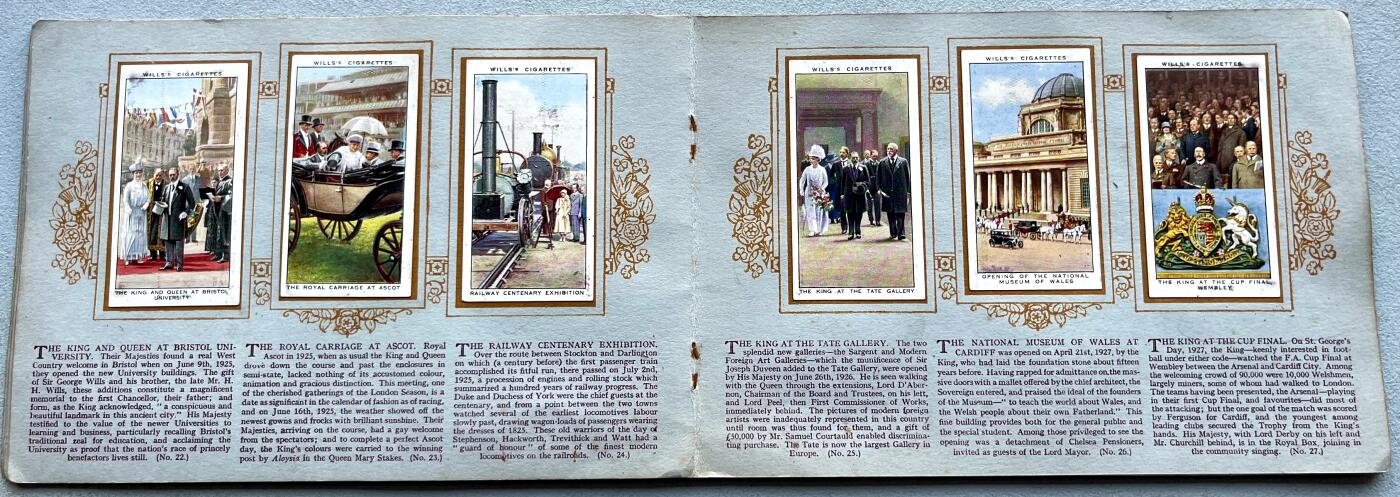 WILLS'S CIGARETTES
THE KING AND QUEEN AT BRISTOL
UNIVERSITY
WILLS'S CIGARETTES
THE ROYAL CARRIAGE AT ASCOT
WILLS'S CIGARETTES
RAILWAY CENTENARY EXHIBITION
WILLS'S CIGARETTES
THE KING AT THE TATE GALLERY
WILLS'S CIGARETTES
OPENING OF THE NATIONAL
MUSEUM OF WALES
WILLS'S CIGARETTES
THE KING AT THE CUP FINAL
WEMBLEY
THE KING AND QUEEN AT BRISTOL UNI-
VERSITY. Their Majesties found a real West
Country welcome in Bristol when on June 9th, 1925,
they opened the new University buildings. The gift
of Sir George Wills and his brother, the late Mr. H.
H. Wills, these additions constitute a magnificent
memorial to the first Chancellor, their father; and
form, as the King acknowledged, "a conspicuous and
beautiful landmark in this ancient city." His Majesty
testified to the value of the newer Universities to
learning and business, particularly recalling Bristol's
traditional zeal for education, and acclaiming the
University as proof that the nation's race of princely
benefactors lives still. (No. 22.)
THE ROYAL CARRIAGE AT ASCOT. Royal
Ascot in 1925, when as usual the King and Queen
drove down the course and past the enclosures in
semi-state, lacked nothing of its accustomed colour,
animation and gracious distinction. This meeting, one
of the cherished gatherings of the London Season, is a
date as significant in the calendar of fashion as of racing,
and on June 16th, 1925, the weather showed off the
newest gowns and frocks with brilliant sunshine. Their
Majesties, arriving on the course, had a gay welcome
from the spectators; and to complete a perfect Ascot
day, the King's colours were carried to the winning
post by Aloysia in the Queen Mary Stakes. (No. 23.)
THE RAILWAY CENTENARY EXHIBITION.
Over the route between Stockton and Darlington
on which (a century before) the first passenger train
accomplished its fitful run, there passed on July 2nd,
1925, a procession of engines and rolling stock which
summarized a hundred years of railway progress. The
Duke and Duchess of York were the chief guests at the
centenary, and from a point between the two towns
watched several of the earliest locomotives labour
slowly past, drawing wagon-loads of passengers wearing
the dresses of 1825. These old warriors of the day of
Stephenson, Hackworth, Trevithick and Watt had a
"guard of honour" of some of the finest modern
locomotives on the railroads. (No. 24.)
THE KING AT THE TATE GALLERY. The two
splendid new galleries—the Sargent and Modern
Foreign Art Galleries—which the munificence of Sir
Joseph Duveen added to the Tate Gallery, were opened
by His Majesty on June 26th, 1926. He is seen walking
with the Queen through the extensions, Lord D'Aber-
non, Chairman of the Board and Trustees, on his left,
and Lord Peel, then First Commissioner of Works,
immediately behind. The pictures of modern foreign
artists were inadequately represented in this country
until room was thus found for them, and a gift of
£50,000 by Mr. Samuel Courtauld enabled discrimina-
ting purchase. The Tate is now the largest Gallery in
Europe. (No. 25.)
THE NATIONAL MUSEUM OF WALES AT
CARDIFF was opened on April 21st, 1927, by the
King, who had laid the foundation stone about fifteen
years before. Having rapped for admittance on the mas-
sive doors with a mallet offered by the chief architect, the
Sovereign entered, and praised the ideal of the founders
of the Museum—" to teach the world about Wales, and
the Welsh people about their own Fatherland." This
fine building provides both for the general public and
the special student. Among those privileged to see the
opening was a detachment of Chelsea Pensioners,
invited as guests of the Lord Mayor. (No. 26.)
THE KING AT THE CUP FINAL. On St. George's
Day, 1927, the King—keenly interested in foot-
ball under either code—watched the F.A. Cup Final at
Wembley between the Arsenal and Cardiff City. Among
the welcoming crowd of 90,000 were 10,000 Welshmen,
largely miners, some of whom had walked to London.
The teams having been presented, the Arsenal—playing
in their first Cup Final, and favourites—did most of
the attacking; but the one goal of the match was scored
by Ferguson for Cardiff, and the youngest among
leading clubs secured the Trophy from the King's
hands. His Majesty, with Lord Derby on his left and
Mr. Churchill behind, is in the Royal Box, joining in
the community singing. (No. 27.)